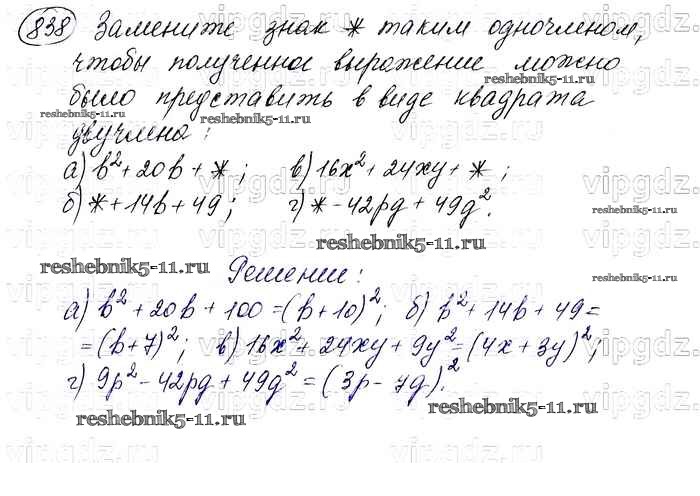 838 Замените знак * таким одночленом,
чтобы полученное выражение можно
было представить в виде квадрата
двучлена:
а) b²+20b+*; в) 16x²+24xy+*;
б) *+14b+49; г) *-42pq+49q².
Решение:
а) b²+20b+100=(b+10)²; б) b²+14b+49=
=(b+7)²; в) 16x²+24xy+9y²=(4x+3y)²;
г) 9p²-42pq+49q²=(3p-7q)².
reshebnik5-11.ru
reshebnik5-11.ru
reshebnik5-11.ru
reshebnik5-11.ru
reshebnik5-11.ru
reshebnik5-11.ru
reshebnik5-11.ru
reshebnik5-11.ru
reshebnik5-11.ru
vipgdz.ru